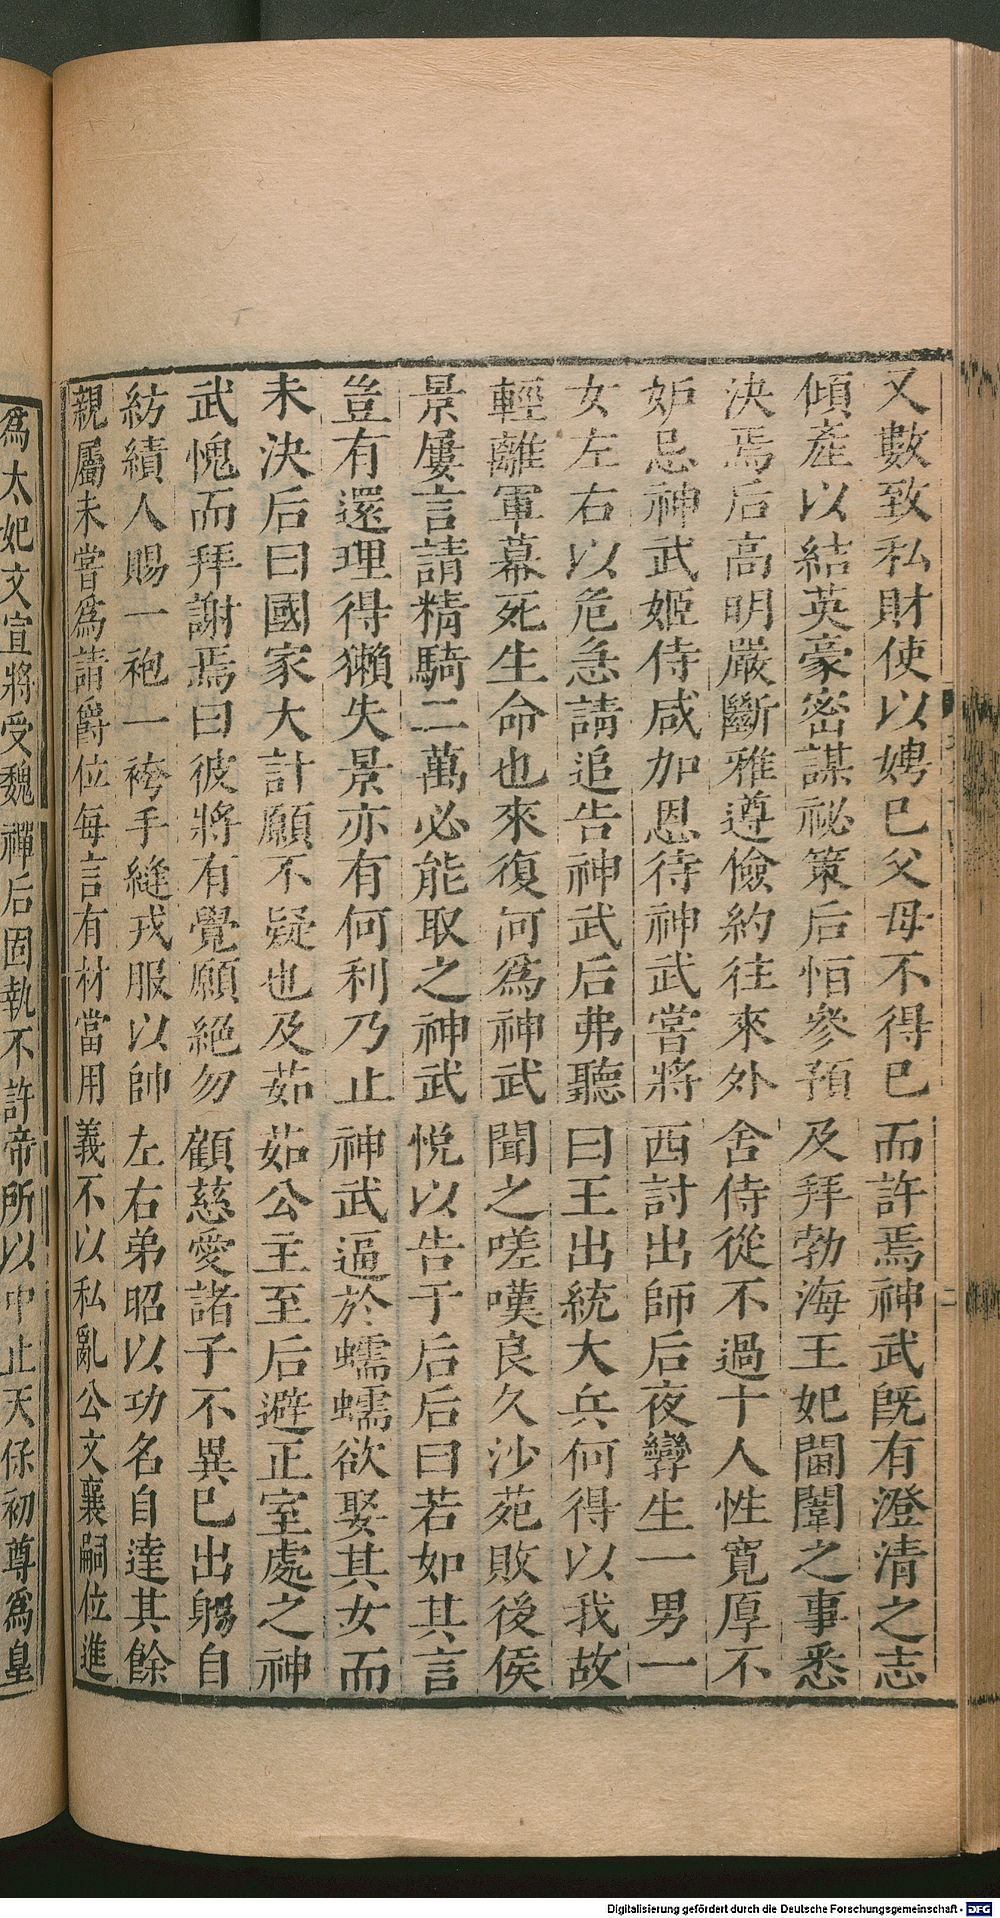 又數致私財使以娉已父母不得已而許焉神武旣有澄清之志
傾產以結英豪密謀祕策后恒參預及拜勃海王妃閫闈之事悉
決焉后高明嚴斷雅遵儉約往來外舍侍從不過十人性寬厚不
妒忌神武姬侍咸加恩待神武嘗將西討出師后夜孿生一男一
女左右以危急請追告神武后弗聽曰王出統大兵何得以我故
輕離軍幕死生命也來復何爲神武聞之嗟嘆良久沙苑敗後侯
景屢言請精騎二萬必能取之神武悅以告于后后曰若如其言
豈有還理得獺失景亦有何利乃止神武逼於蠕蠕欲娶其女而
未決后曰國家大計願不疑也及茹茹公主至后避正室處之神
武愧而拜謝焉曰彼將有覺願絕勿顧慈愛諸子不異已出躬自
紡績人賜一袍一袴手縫戎服以帥左右弟昭以功名自達其餘
親屬未嘗爲請爵位每言有材當用義不以私亂公文襄嗣位進
爲太妃文宣將受魏禪后固執不許帝所以中止天保初尊爲皇
二
Digitalisierung gefördert durch die Deutsche Forschungsgemeinschaft - DFG